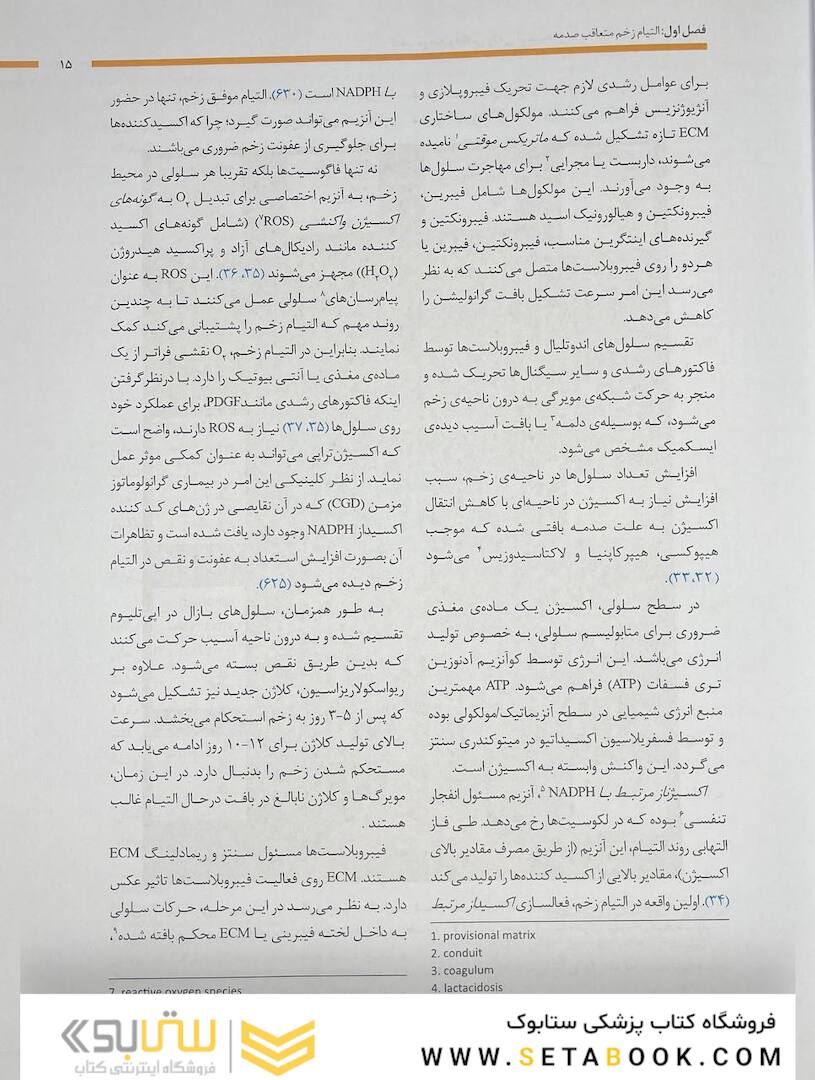 فصل اول: التیام زخم متعاقب صدمه
۱۵
برای عوامل رشدی لازم جهت تحریک فیبروپلازی و
آنژیوژنزیس فراهم می‌کنند. مولکول‌های ساختاری
ECM تازه تشکیل شده که ماتریکس موقتی۱ نامیده
می‌شوند، داربست یا مجرایی۲ برای مهاجرت سلول‌ها
به وجود می‌آورند. این مولکول‌ها شامل فیبرین،
فیبرونکتین و هیالورونیک اسید هستند. فیبرونکتین و
گیرنده‌های اینتگرین مناسب، فیبرونکتین، فیبرین یا
هردو را روی فیبروبلاست‌ها متصل می‌کنند که به نظر
می‌رسد این امر سرعت تشکیل بافت گرانولیشن را
کاهش می‌دهد.
تقسیم سلول‌های اندوتلیال و فیبروبلاست‌ها توسط
فاکتورهای رشدی و سایر سیگنال‌ها تحریک شده و
منجر به حرکت شبکه‌ی مویرگی به درون ناحیه‌ی زخم
می‌شود، که بوسیله‌ی دلمه۳ یا بافت آسیب دیده‌ی
ایسکمیک مشخص می‌شود.
افزایش تعداد سلول‌ها در ناحیه‌ی زخم، سبب
افزایش نیاز به اکسیژن در ناحیه‌ای با کاهش انتقال
اکسیژن به علت صدمه بافتی شده که موجب
هیپوکسی، هیپرکاپنیا و لاکتاسیدوزیس۴ می‌شود
(۳۳،۳۲).
در سطح سلولی، اکسیژن یک ماده‌ی مغذی
ضروری برای متابولیسم سلولی، به خصوص تولید
انرژی می‌باشد. این انرژی توسط کوآنزیم آدنوزین
تری فسفات (ATP) فراهم می‌شود. ATP مهمترین
منبع انرژی شیمیایی در سطح آنزیماتیک/مولکولی بوده
و توسط فسفریلاسیون اکسیداتیو در میتوکندری سنتز
می‌گردد. این واکنش وابسته به اکسیژن است.
اکسیژناز مرتبط با NADPH۵، آنزیم مسئول انفجار
تنفسی۶ بوده که در لکوسیت‌ها رخ می‌دهد. طی فاز
التهابی روند التیام، این آنزیم (از طریق مصرف مقادیر بالای
اکسیژن)، مقادیر بالایی از اکسید کننده‌ها را تولید می‌کند
(۳۴). اولین واقعه در التیام زخم، فعالسازی اکسیداز مرتبط
1. provisional matrix
2. conduit
3. coagulum
4. lactacidosis
با NADPH است (۶۳۰). التیام موفق زخم، تنها در حضور
این آنزیم می‌تواند صورت گیرد؛ چرا که اکسیدکننده‌ها
برای جلوگیری از عفونت زخم ضروری می‌باشند.
نه تنها فاگوسیت‌ها بلکه تقریبا هر سلولی در محیط
زخم، به آنزیم اختصاصی برای تبدیل O۲ به گونه‌های
اکسیژن واکنشی (ROS۷) (شامل گونه‌های اکسید
کننده مانند رادیکال‌های آزاد و پراکسید هیدروژن
(H۲O۲)) مجهز می‌شوند (۳۵، ۳۶). این ROS به عنوان
پیام‌رسان‌های۸ سلولی عمل می‌کنند تا به چندین
روند مهم که التیام زخم را پشتیبانی می‌کند کمک
نمایند. بنابراین در التیام زخم، O۲ نقشی فراتر از یک
ماده‌ی مغذی یا آنتی بیوتیک را دارد. با درنظرگرفتن
اینکه فاکتورهای رشدی مانند PDGF، برای عملکرد خود
روی سلول‌ها (۳۵، ۳۷) نیاز به ROS دارند، واضح است
که اکسیژن‌تراپی می‌تواند به عنوان کمکی موثر عمل
نماید. از نظر کلینیکی این امر در بیماری گرانولوماتوز
مزمن (CGD) که در آن نقایصی در ژن‌های کد کننده
اکسیداز NADPH وجود دارد، یافت شده است و تظاهرات
آن بصورت افزایش استعداد به عفونت و نقص در التیام
زخم دیده می‌شود (۶۲۵).
به طور همزمان، سلول‌های بازال در اپی‌تلیوم
تقسیم شده و به درون ناحیه آسیب حرکت می‌کنند
که بدین طریق نقص بسته می‌شود. علاوه بر
ریواسکولاریزاسیون، کلاژن جدید نیز تشکیل می‌شود
که پس از ۵-۳ روز به زخم استحکام می‌بخشد. سرعت
بالای تولید کلاژن برای ۱۲-۱۰ روز ادامه می‌یابد که
مستحکم شدن زخم را بدنبال دارد. در این زمان،
مویرگ‌ها و کلاژن نابالغ در بافت درحال التیام غالب
هستند .
فیبروبلاست‌ها مسئول سنتز و ریمادلینگ ECM
هستند. ECM روی فعالیت فیبروبلاست‌ها تاثیر عکس
دارد. به نظر می‌رسد در این مرحله، حرکات سلولی
به داخل لخته فیبرینی یا ECM محکم بافته شده۹،
7. reactive oxygen species
فروشگاه کتاب پزشکی ستابوک
WWW.SETABOOK.COM
ستابوک
فروشگاه اینترنتی کتاب